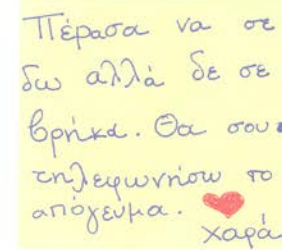 Πέρασα να σε
δω αλλά δε σε
βρήκα. Θα σου
τηλεφωνήσω το
απόγευμα.
Χαρά